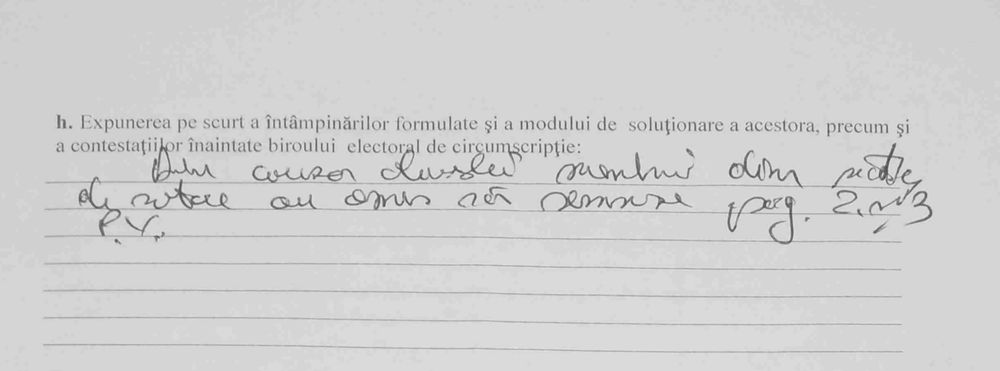 h. Expunerea pe scurt a întâmpinărilor formulate şi a modului de soluţionare a acestora, precum şi
a contestaţiilor înaintate biroului electoral de circumscripţie:
Din cauza membrii din secţia
de votare au omis să semneze pag. 2 şi 3
P.V.